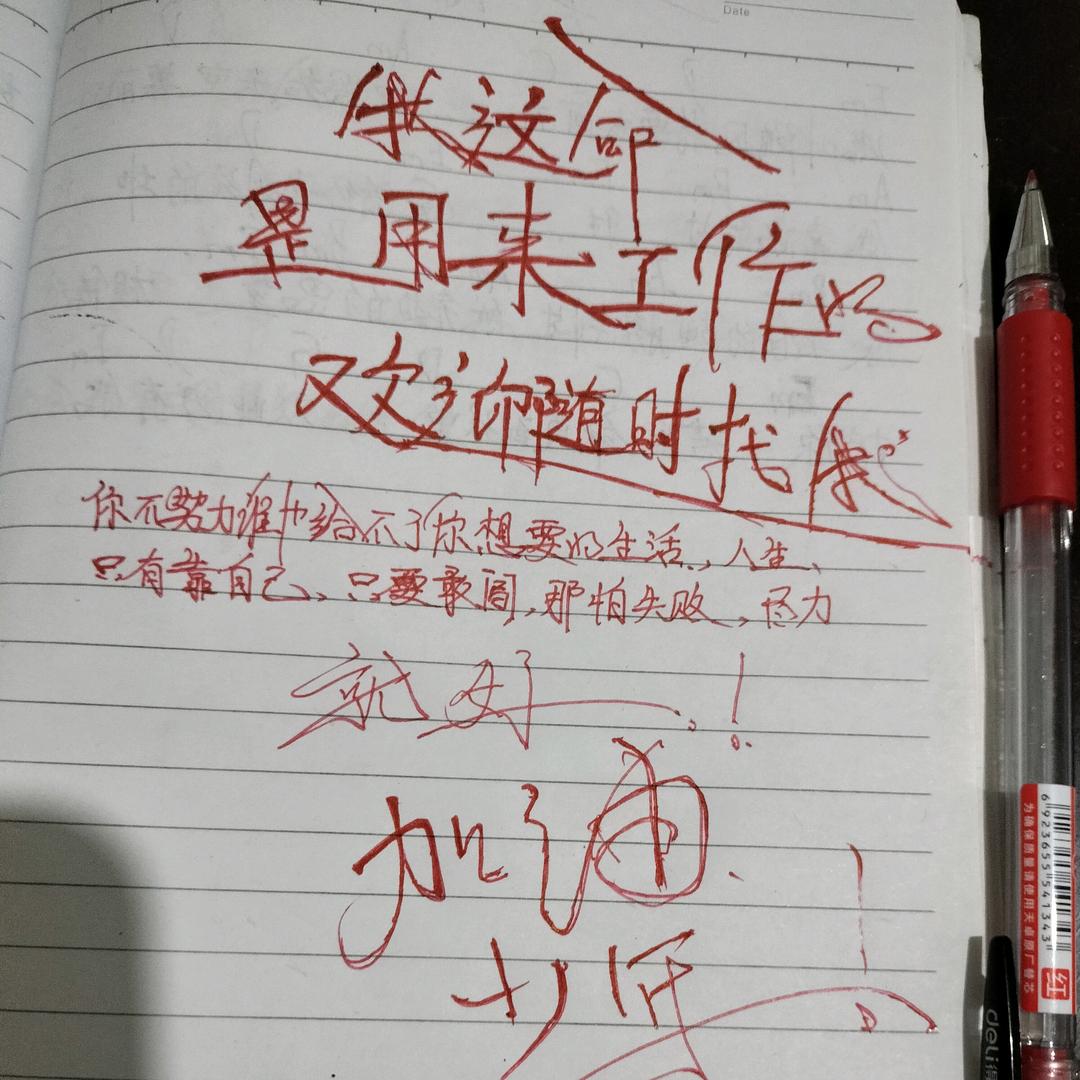 Date
我这命
是用来工作的
又欢迎你随时找我
你不努力谁也给不了你想要的生活,人生、
只有靠自己、只要敢闯,那怕失败,尽力
就好!
加油
少年!
6923655541343
为确保质量请使用天卓原厂替芯
红
deli得